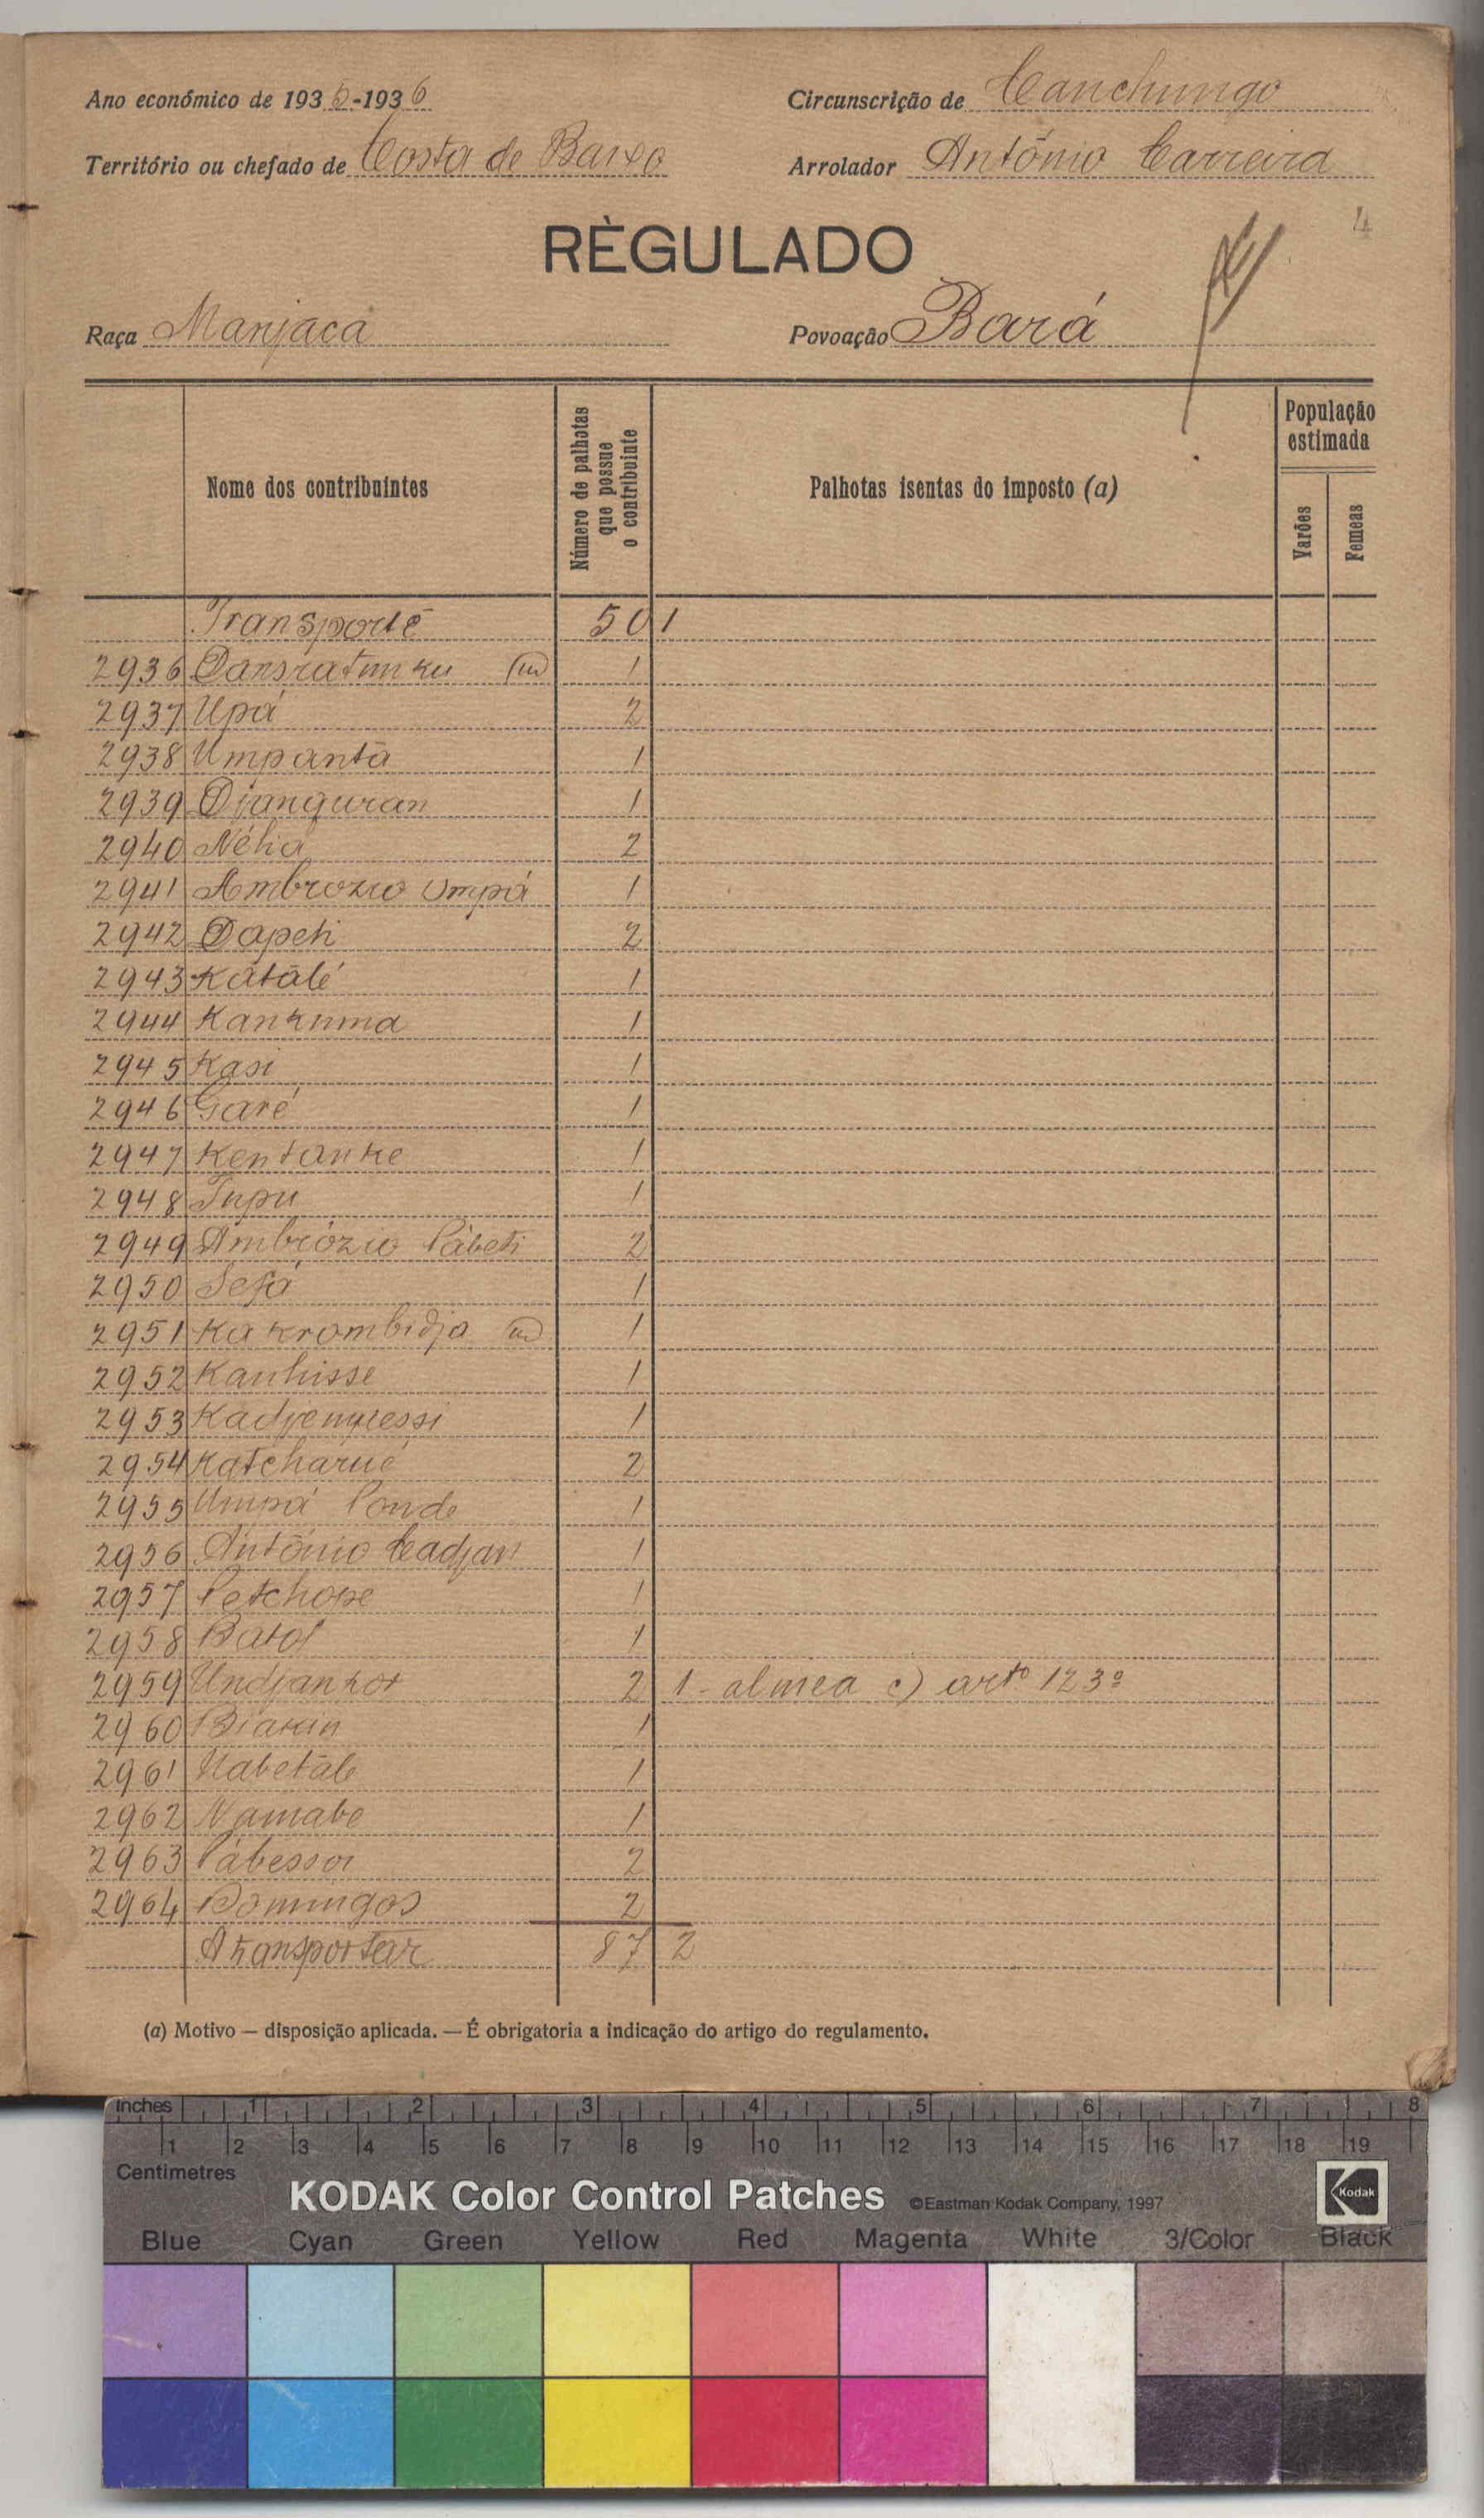 Ano económico de 1935-1936
Circunscrição de Canchungo
Território ou chefado de Costa de Baixo
Arrolador António Carreira
RÈGULADO
4
Raça Manjaca
Povoação Bará
Nome dos contribuintes
Número de palhotas que possue o contribuinte
Palhotas isentas do imposto (a)
População estimada
Varões
Femeas
Transporte 50 1
2936 (m) 1
2937 Upá 2
2938 Umpantā 1
2939 Djanguran 1
2940 2
2941 Ambrozio Umpá 1
2942 Dapeti 2
2943 Katālé 1
2944 Kankuma 1
2945 Kasi 1
2946 Garé 1
2947 Kentanke 1
2948 Tupu 1
2949 Ambrózio Pábeti 2
2950 Sefá 1
2951 Kakrombidja (m) 1
2952 Kanhisse 1
2953 1
2954 Katcharué 2
2955 Umpá Ponde 1
2956 António Cadjan 1
2957 Petchope 1
2958 1
2959 Undjankot 2 1 - c) artº 123º
2960 1
2961 Nabetāle 1
2962 Namabe 1
2963 2
2964 Domingos 2
A transportar 87 2
(a) Motivo — disposição aplicada. — É obrigatoria a indicação do artigo do regulamento.
Inches 1 2 3 4 5 6 7 8
1 2 3 4 5 6 7 8 9 10 11 12 13 14 15 16 17 18 19
Centimetres
KODAK Color Control Patches ©Eastman Kodak Company, 1997 Kodak
Blue Cyan Green Yellow Red Magenta White 3/Color Black